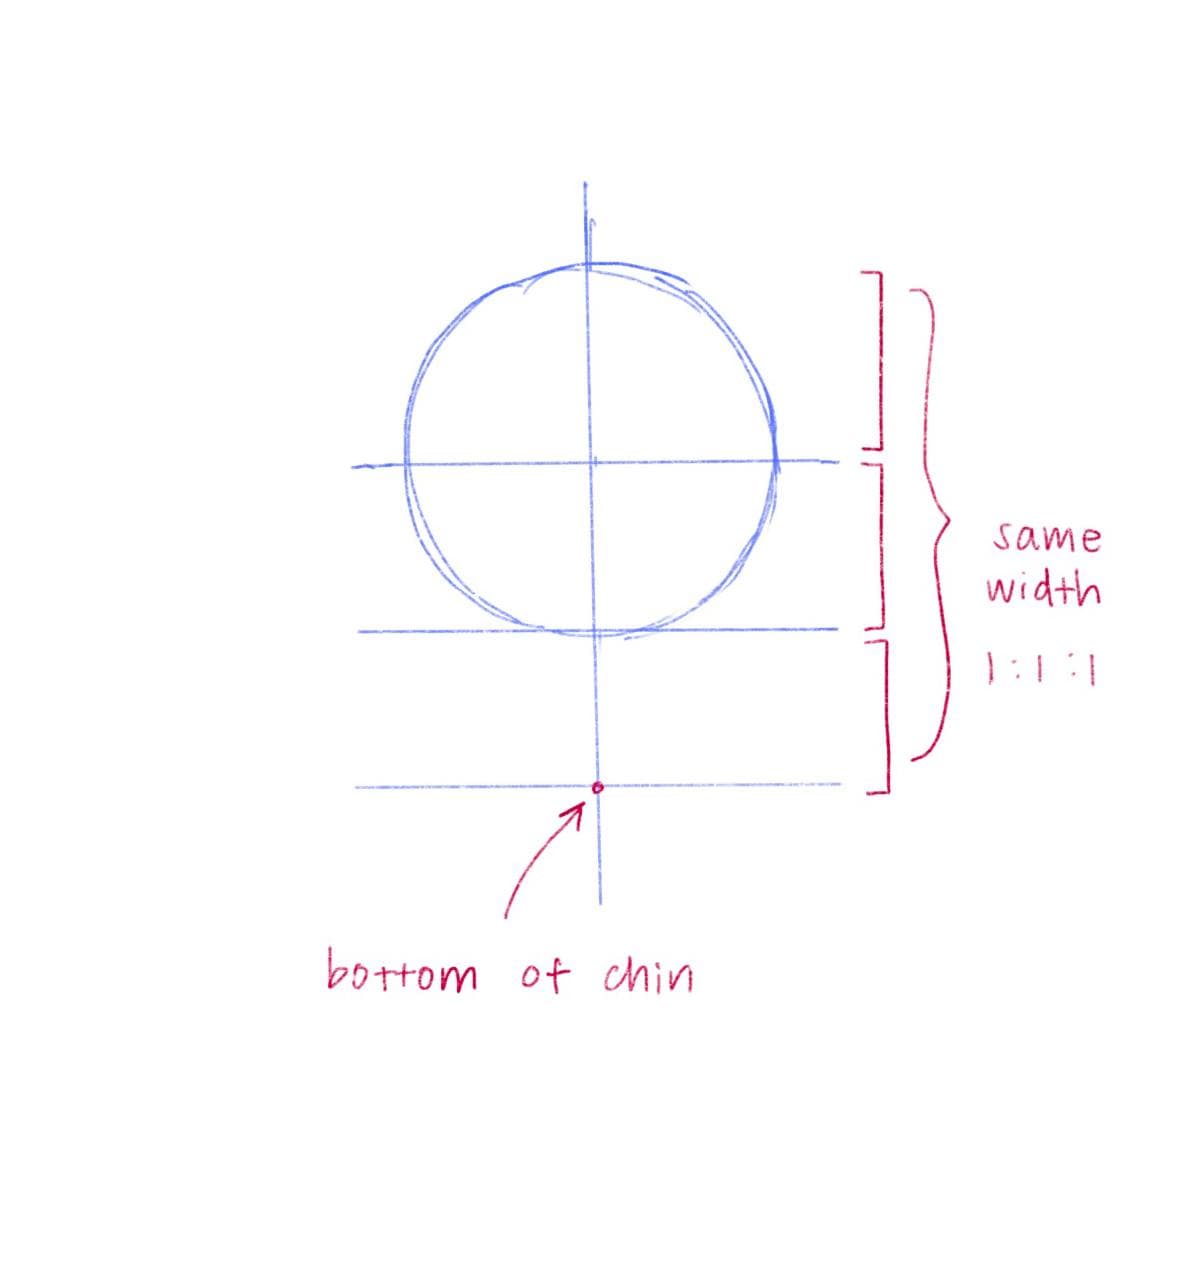 same
width
1:1:1
bottom of chin